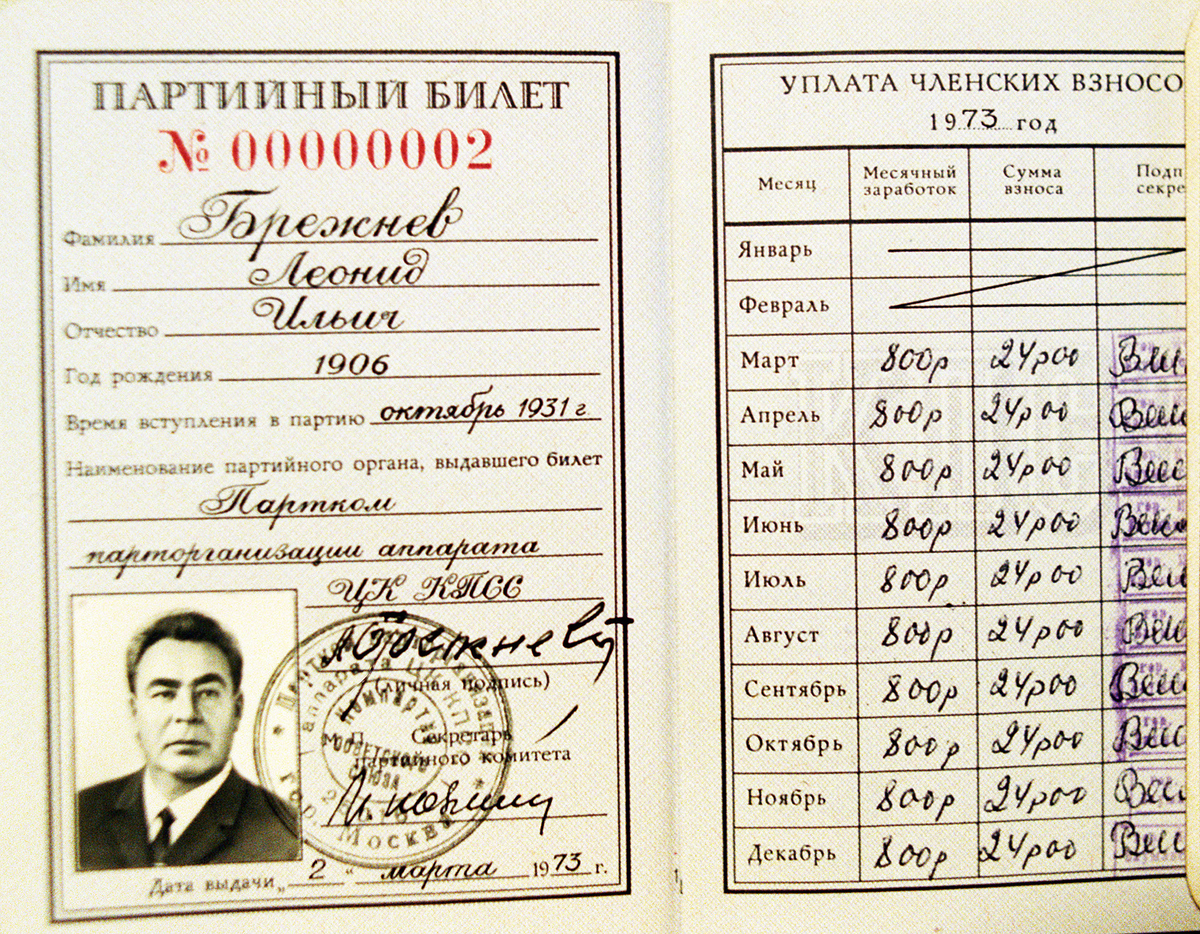 ПАРТИЙНЫЙ БИЛЕТ
№ 00000002
Фамилия Брежнев
Имя Леонид
Отчество Ильич
Год рождения 1906
Время вступления в партию октябрь 1931 г.
Наименование партийного органа, выдавшего билет
Партком
парторганизации аппарата
ЦК КПСС
(личная подпись)
М. П. Секретарь
партийного комитета
аппарата ЦК КП
Компартия
Советского
Союза
гор. Москва
Дата выдачи „ 2 " марта 1973 г.
УПЛАТА ЧЛЕНСКИХ ВЗНОСО
1973 год
Месяц Месячный заработок Сумма взноса Подп секре
Январь
Февраль
Март 800р 24р00
Апрель 800р 24р00
Май 800р 24р00
Июнь 800р 24р00
Июль 800р 24р00
Август 800р 24р00
Сентябрь 800р 24р00
Октябрь 800р 24р00
Ноябрь 800р 24р00
Декабрь 800р 24р00